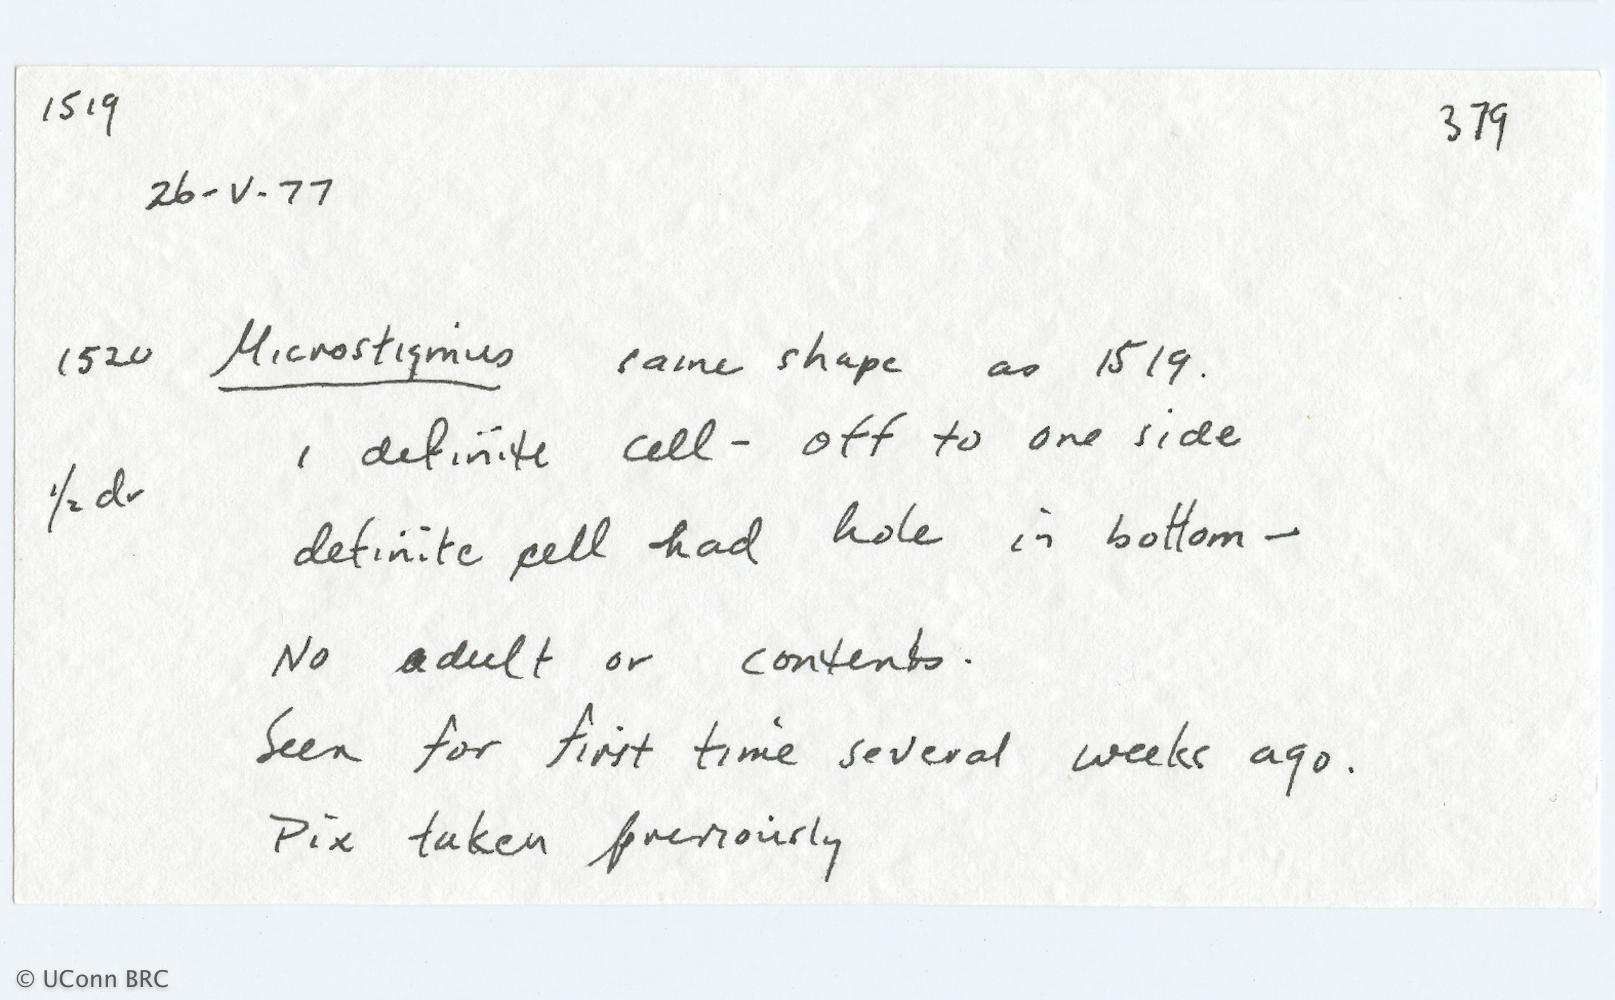 1519 379
26-V-77
1520 Microstigmus same shape as 1519.
1 definite cell - off to one side
1/2 dr
definite cell had hole in bottom -
No adult or contents.
Seen for first time several weeks ago.
Pix taken previously
© UConn BRC